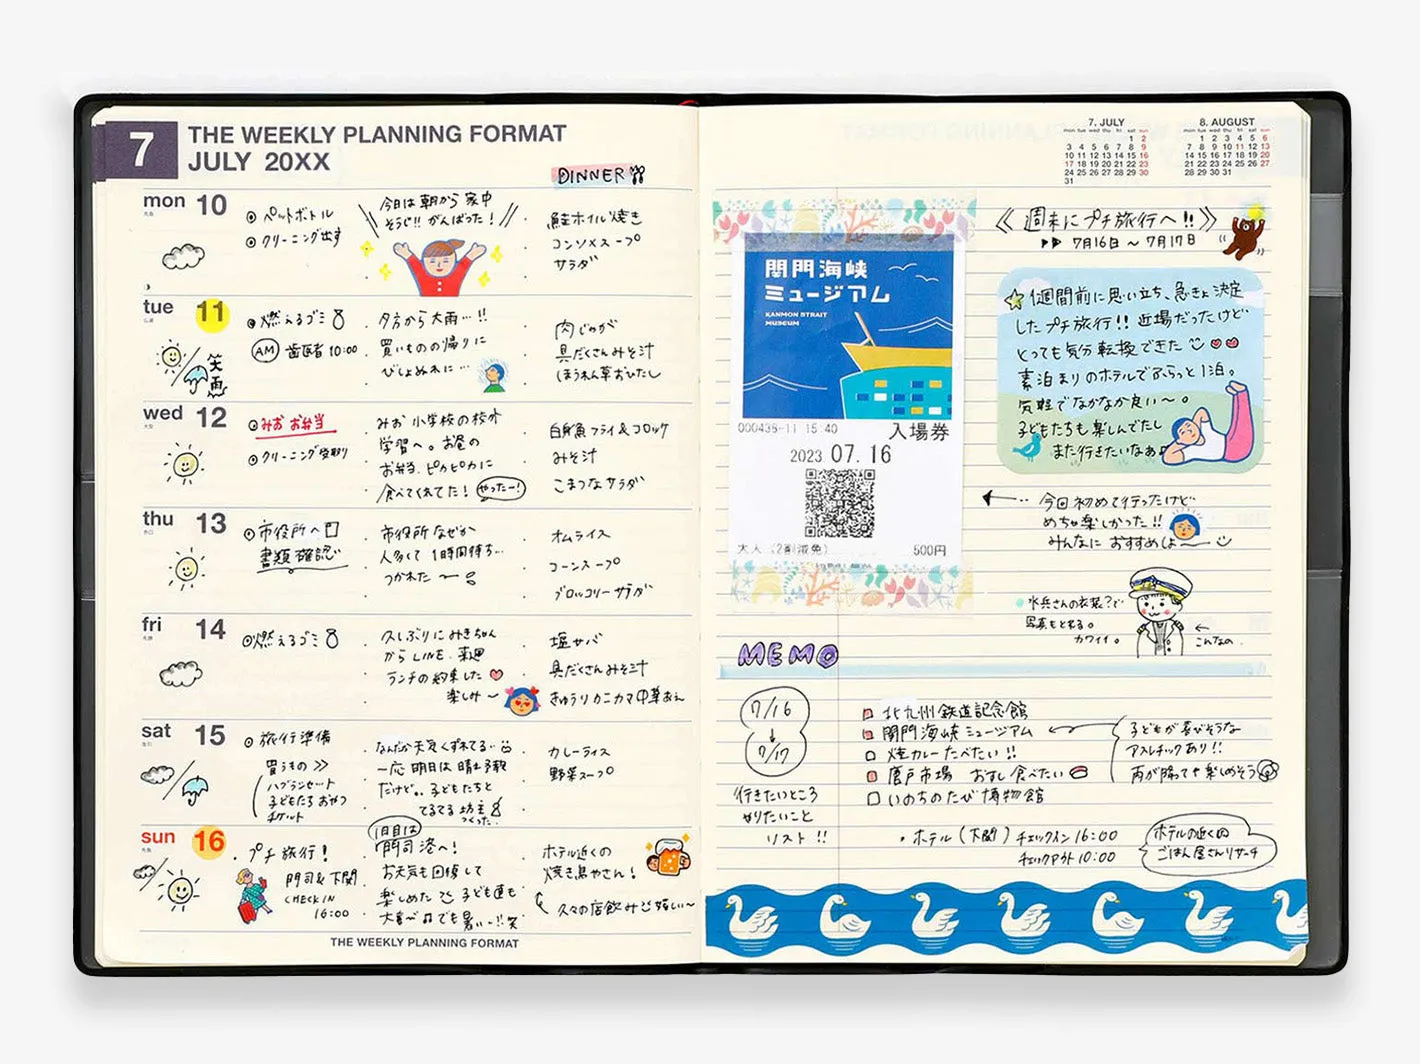 7
THE WEEKLY PLANNING FORMAT
JULY 20XX
DINNER
mon 10
ペットボトル
クリーニング出す
今日は朝から家中
そうじ!! がんばった!
鮭ホイル焼き
コンソメスープ
サラダ
tue 11
燃えるゴミ
AM 歯医者 10:00
笑
雨
夕方から大雨…!!
買いもの帰りに
びしょぬれに…
肉じゃが
具だくさんみそ汁
ほうれん草おひたし
wed 12
みお お弁当
クリーニング受取り
みお 小学校の校外
学習へ。お昼の
お弁当、ピカピカに
食べてくれてた! やったー!
白身魚フライ&コロッケ
みそ汁
こまつなサラダ
thu 13
市役所へ
書類確認
市役所なぜか
人多くて 1時間待ち…
つかれた〜
オムライス
コーンスープ
ブロッコリーサラダ
fri 14
燃えるゴミ
久しぶりに みきちゃん
からLINE. 来週
ランチの約束した
楽しみ〜
塩サバ
具だくさんみそ汁
きゅうりカニカマ中華あえ
sat 15
旅行準備
買うもの >>
ハブラシセット
子どもたち おやつ
チケット
なんだか天気くずれてる…
一応 明日は晴れ予報
だけど。。子どもたちと
てるてる坊主
つくった。
カレーライス
野菜スープ
sun 16
プチ旅行!
門司&下関
CHECK IN
16:00
1日目は
門司港へ!
お天気も回復して
楽しめた 子ども達も
大喜び でも暑い…!!笑
ホテル近くの
焼き鳥やさん!
久々の店飲み 嬉しい〜
THE WEEKLY PLANNING FORMAT
7. JULY
mon tue wed thu fri sat sun
1 2
3 4 5 6 7 8 9
10 11 12 13 14 15 16
17 18 19 20 21 22 23
24 25 26 27 28 29 30
31
8. AUGUST
mon tue wed thu fri sat sun
1 2 3 4 5 6
7 8 9 10 11 12 13
14 15 16 17 18 19 20
21 22 23 24 25 26 27
28 29 30 31
《週末にプチ旅行へ!!》
7月16日〜7月17日
関門海峡
ミュージアム
KANMON STRAIT
MUSEUM
000435-11 15:40
入場券
2023 07.16
大人(2割減免)
500円
1週間前に思い立ち、急きょ決定
したプチ旅行!! 近場だったけど
とっても気分転換できた
素泊まりのホテルでふらっと1泊。
気軽でなかなか良い〜。
子どもたちも楽しんでたし
また行きたいなあ
今回初めて行ったけど
めちゃ楽しかった!!
みんなに おすすめしよ〜
水兵さんの衣装?で
写真もとれる。
カワイイ。
こんなの
MEMO
7/16
↓
7/17
行きたいところ
やりたいこと
リスト!!
北九州鉄道記念館
関門海峡ミュージアム
焼カレーたべたい!!
唐戸市場 おすし食べたい
いのちのたび博物館
子どもが喜びそうな
アスレチックあり!!
雨が降っても楽しめそう
・ホテル(下関)チェックイン 16:00
チェックアウト 10:00
ホテルの近くの
ごはん屋さんリサーチ